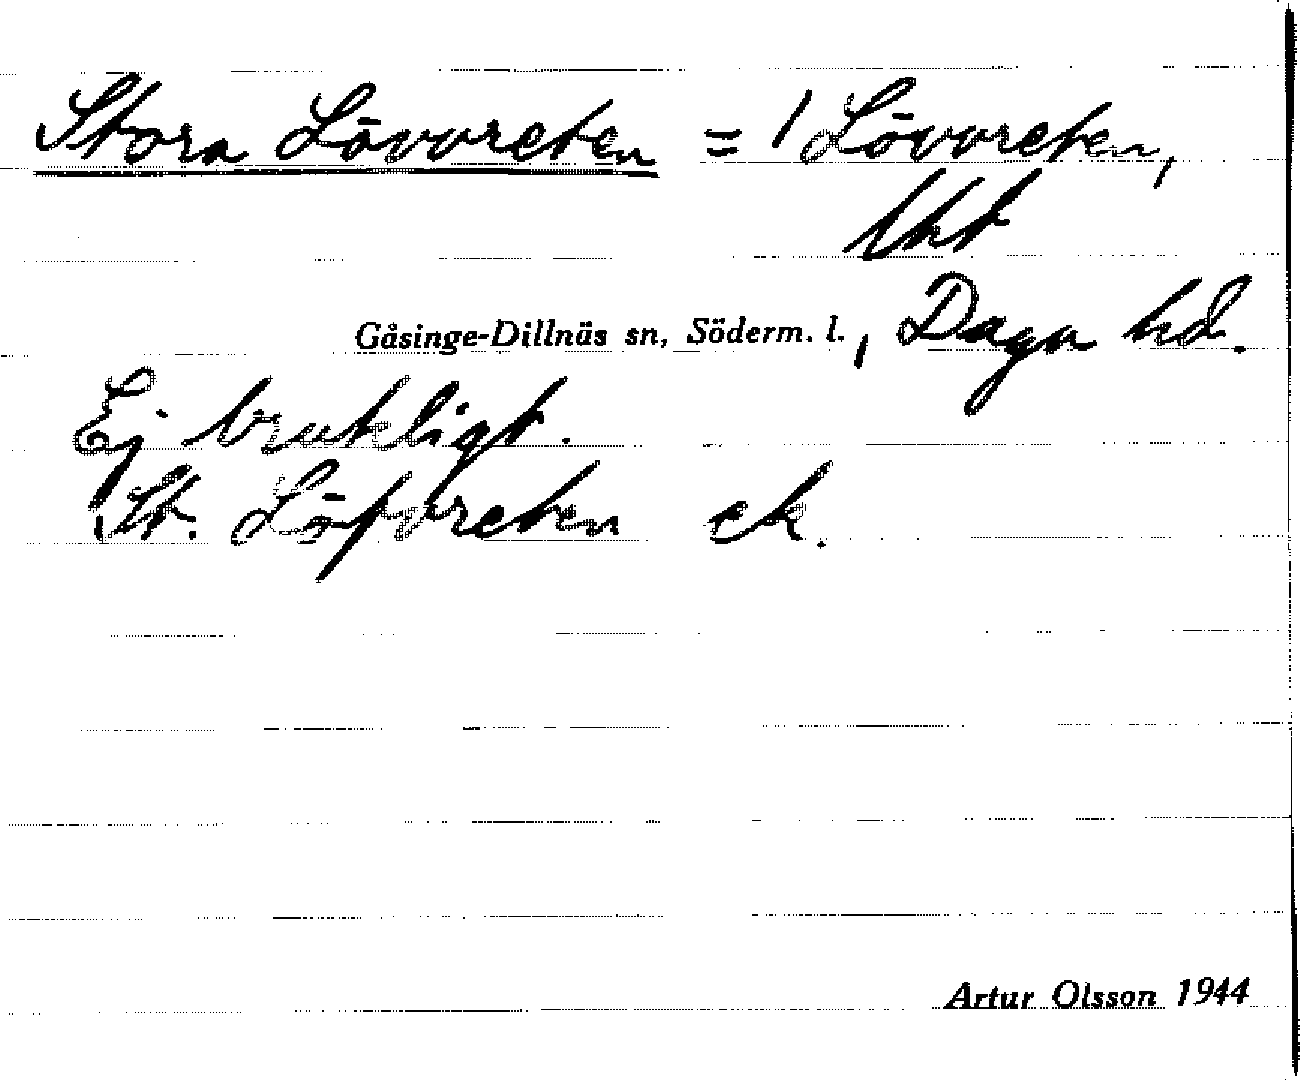 Stora Lövvreten = 1 Lövvreten,
lht
Gåsinge-Dillnäs sn, Söderm. l., Daga hd.
Ej brukligt.
St. Löfvreten ek.
Artur Olsson 1944